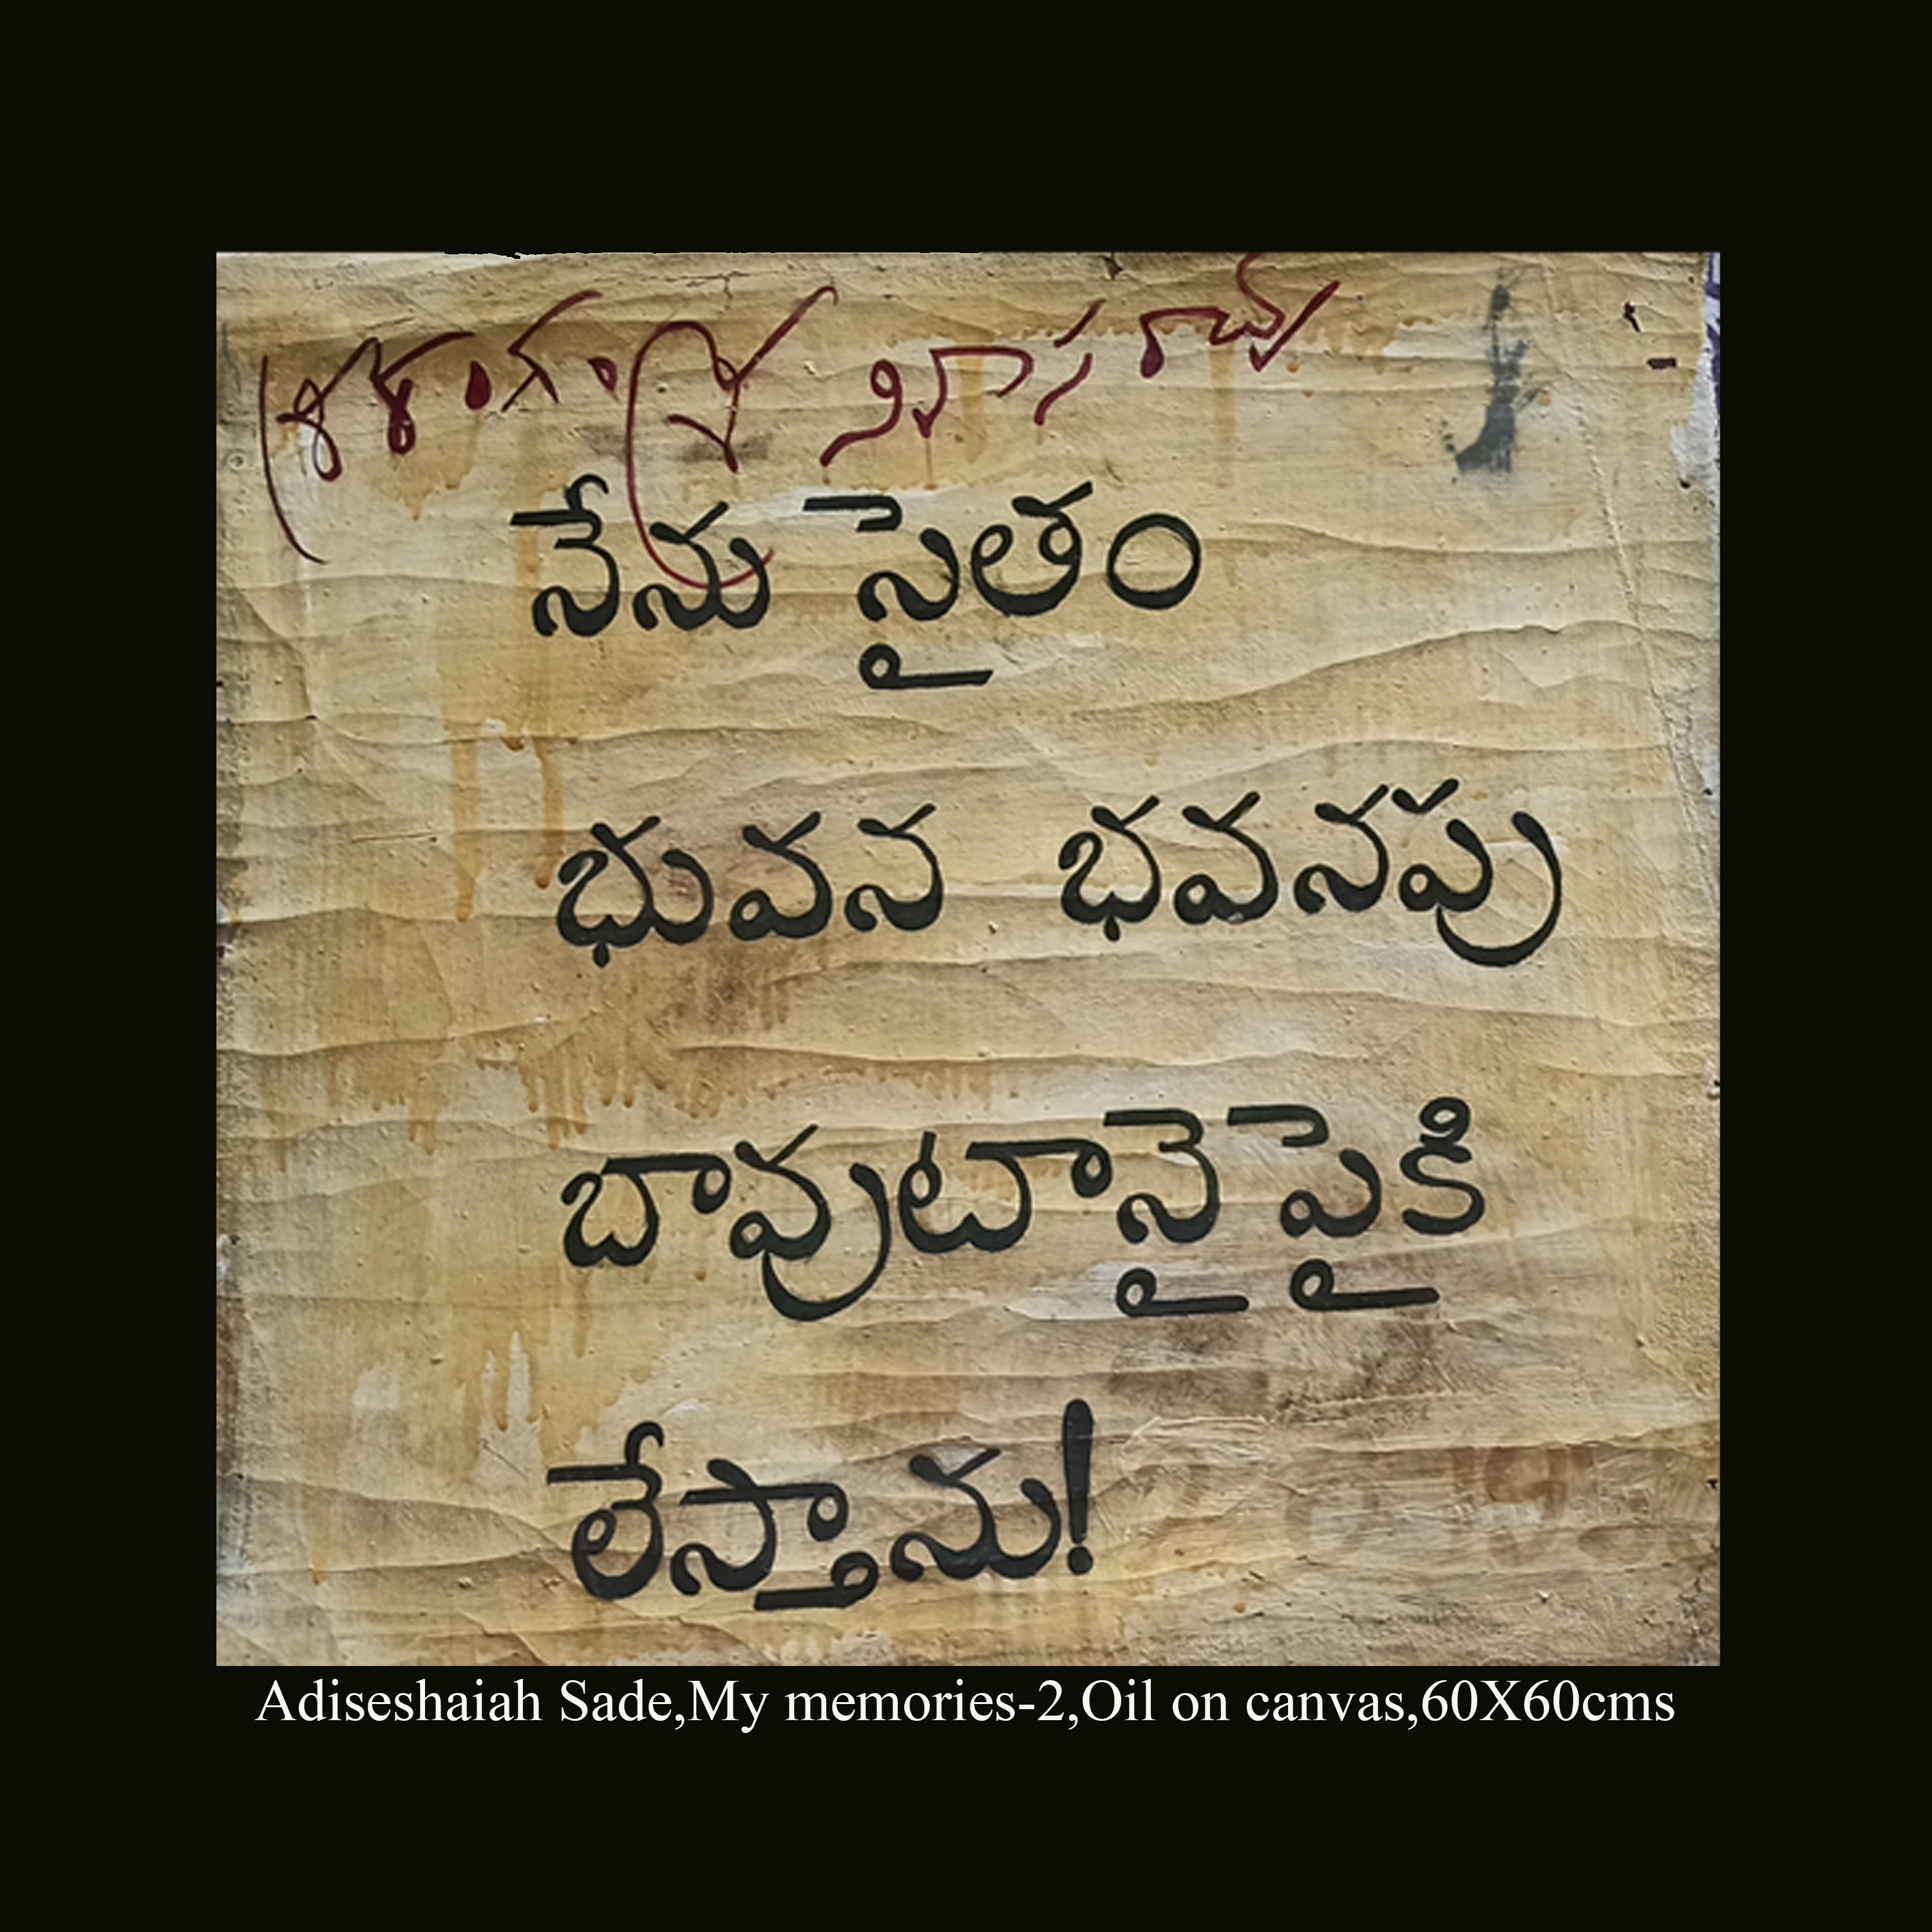 శ్రీరంగం శ్రీనివాసరావు
నేను సైతం
భువన భవనపు
బావుటానైపైకి
లేస్తాను!
Adiseshaiah Sade,My memories-2,Oil on canvas,60X60cms